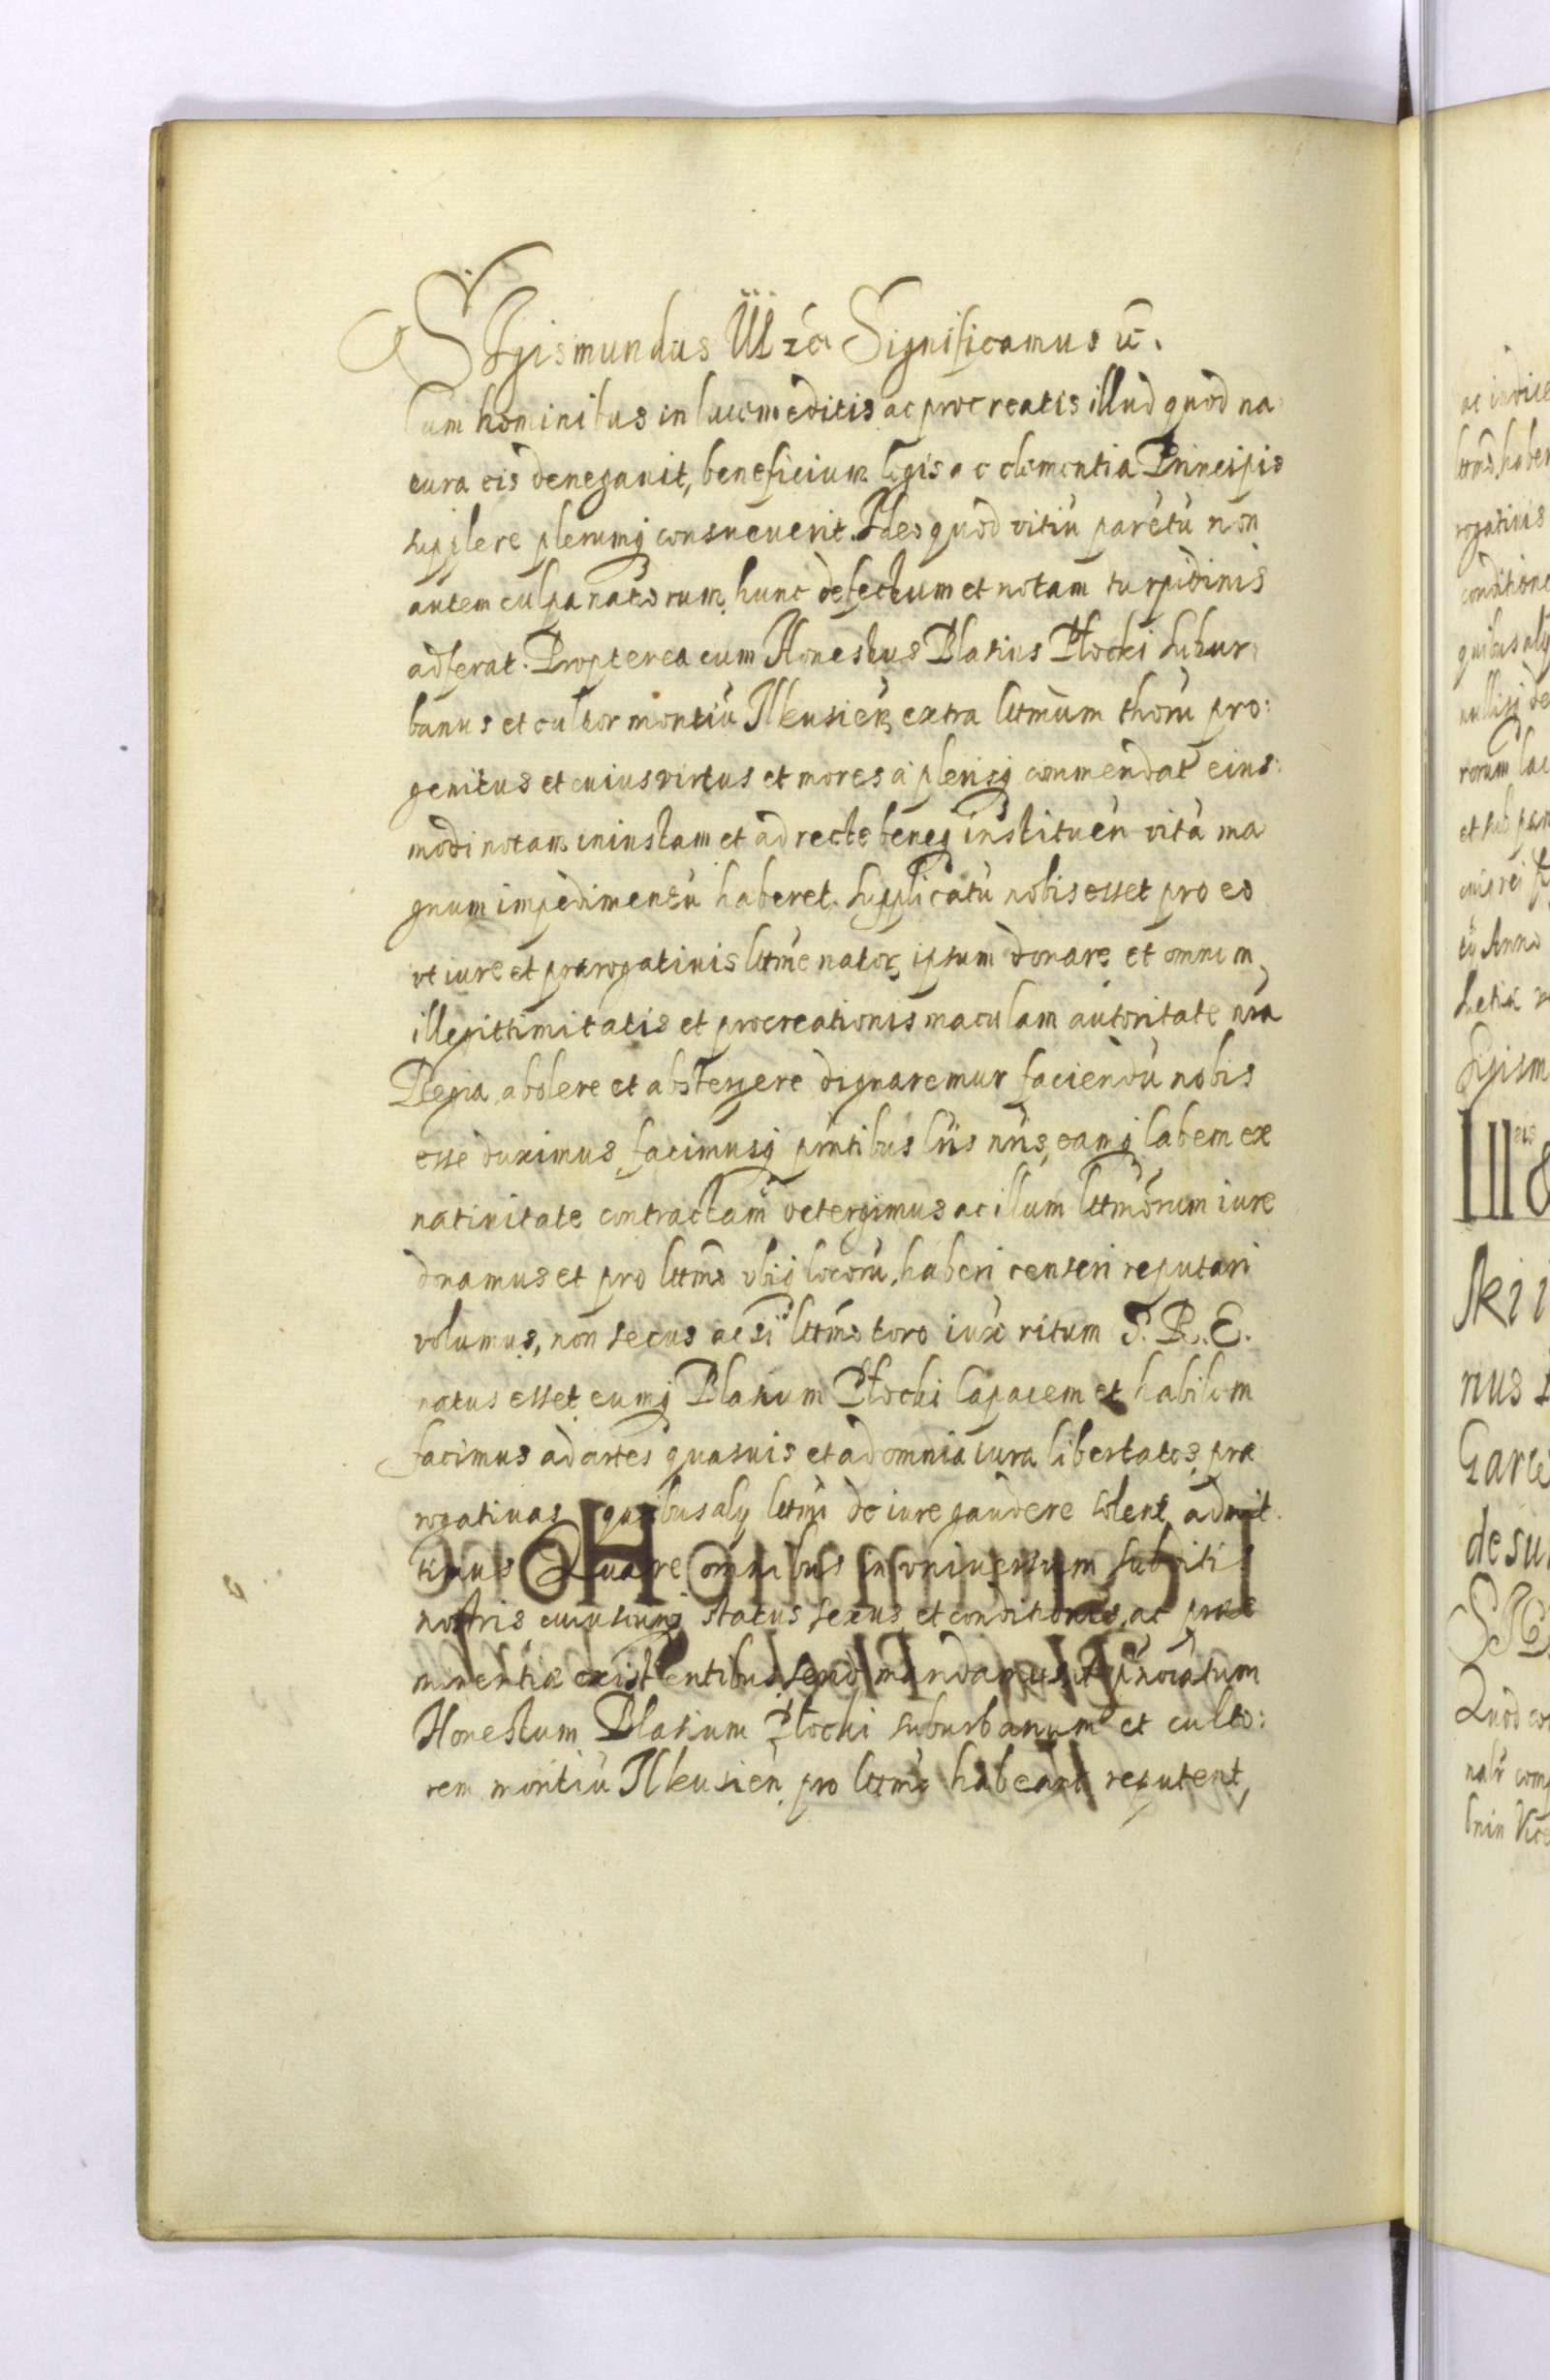 SIgismundus III &c Significamus &c.
Cum hominibus in lucem editis ac procreatis illud quod na
tura eis denegauit, beneficium legis ac clementia Principis
supplere plerumq consueuerit. Ideo quod vitiũ parẽtũ non
autem culpa natorum hunc defectum et notam turpidinis
adferat. Propterea cum Honestus Blasius Płocki subur
banus et cultor montiũ Ilkusieñ extra lttmum thorũ pro:
genitus et cuius virtus et mores à plerisq commendat eius:
modi notam iniustam et ad recte beneq institueñ vitã ma
gnum impedimentũ haberet. Supplicatũ nobis esset pro eo
vt iure et prærogatiuis lttme nator ipsum donare et omnem
illegittimitatis et procreationis maculam autoritate nrã
Regia abolere et abstergere dignaremur faciendũ nobis
esse duximus facimusq pñtibus lris nris, eamq labem ex
natiuitate contractam detergimus ac illum lttmorum iure
donamus et pro lttmo vbiq locorũ, haberi censeri reputari
volumus, non secus ac si lttmo toro iux ritum S. R. E.
natus esset eumq Blasium Płocki capacem et habilem
facimus ad artes quasuis et ad omnia iura libertates præ
rogatiuas quibus alij lttmi de iure gaudere solent admit
timus Quare omnibus in vniuersum subditis
nostris cuiuscunq status sexus et conditionis, ac præe
minentiæ existentibus serio mandamus, vt pñoiatum
Honestum Blasium Płocki suburbanum et culto:
rem montiũ Ilkusieñ pro lttmo habeant reputent,